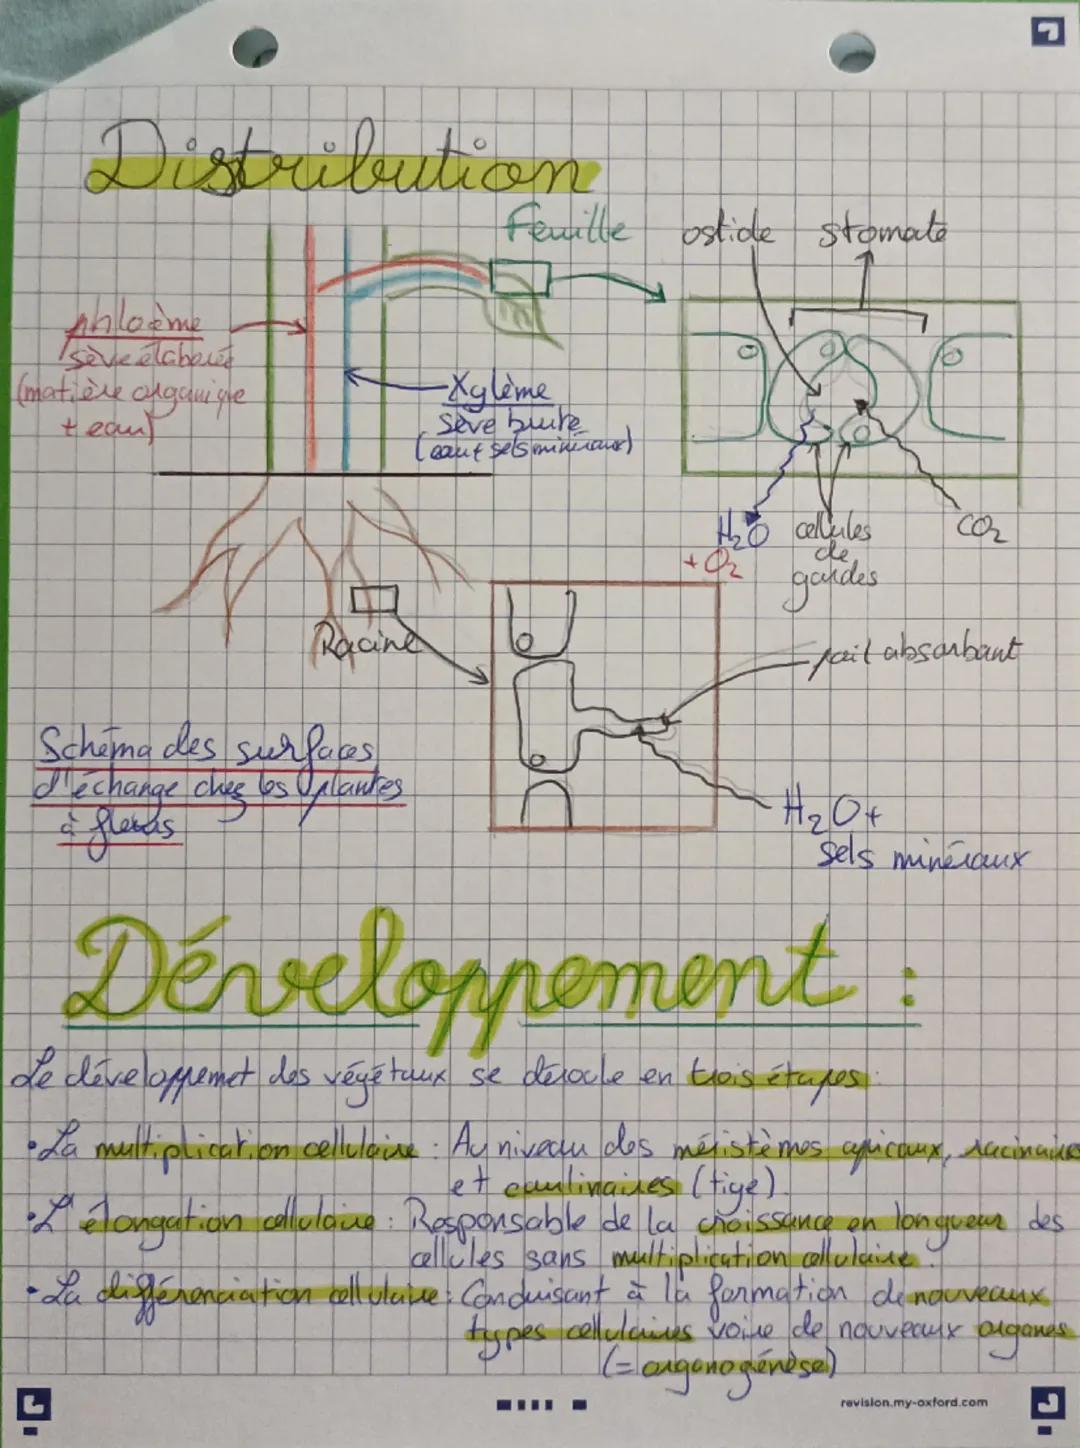 Distribution
Feuille
ostide
stomate
phloème
sève élaborée
(matière organique
+ eau)
Xylème
sève brute
(eau + sels minéraux)
H₂O
+ O₂
cellules
de
gardes
CO₂
Racine
poil absorbant
Schéma des surfaces
d'échange chez les plantes
à fleurs
H₂O +
sels minéraux
Développement :
Le développemet des végétaux se déroule en trois étapes :
• La multiplication cellulaire : Au niveau des méristèmes apicaux, racinaires
et caulinaires (tige).
• L'élongation cellulaire : Responsable de la croissance en longueur des
cellules sans multiplication cellulaire.
• La différenciation cellulaire : Conduisant à la formation de nouveaux
types cellulaires voire de nouveaux organes
(= organogénèse)
revision.my-oxford.com